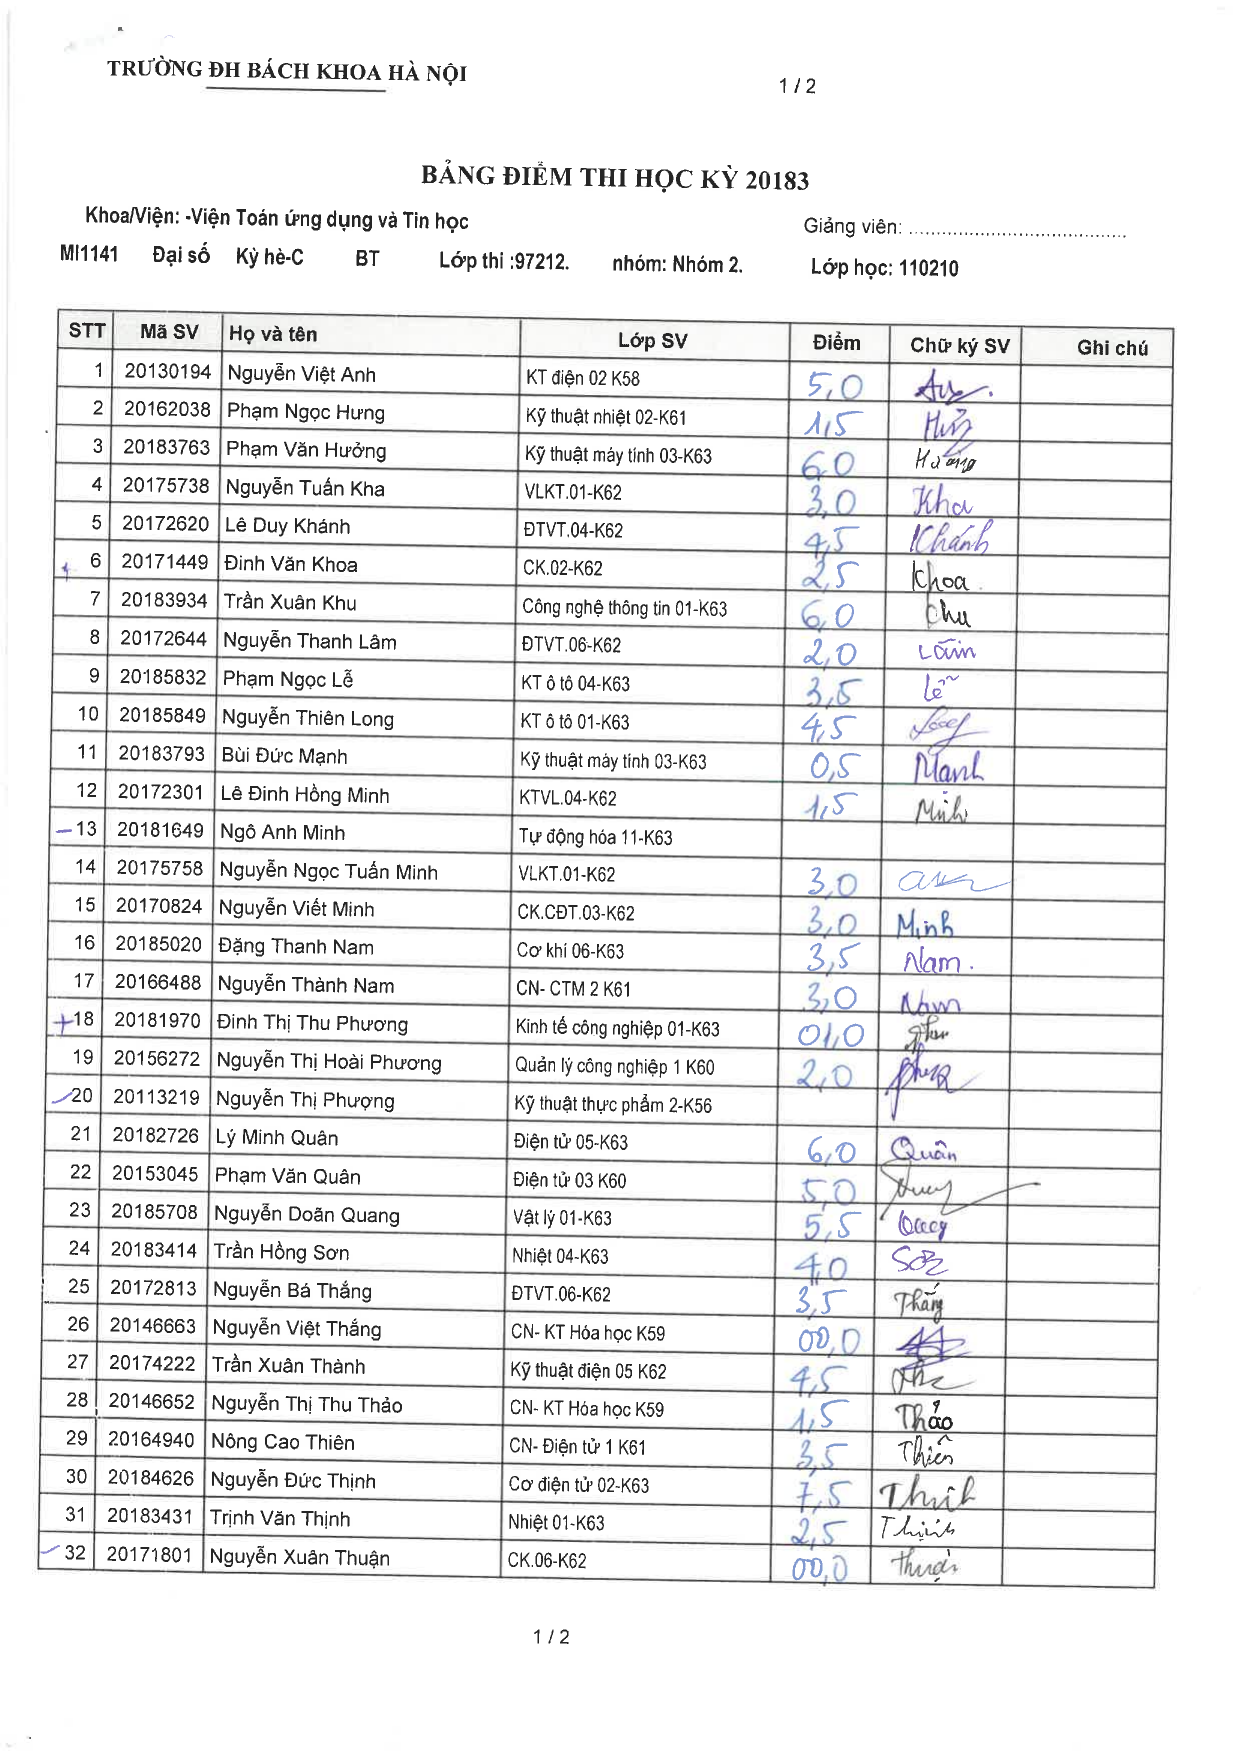 TRƯỜNG ĐH BÁCH KHOA HÀ NỘI
1 / 2
BẢNG ĐIỂM THI HỌC KỲ 20183
Khoa/Viện: -Viện Toán ứng dụng và Tin học Giảng viên: ........................................
MI1141 Đại số Kỳ hè-C BT Lớp thi :97212. nhóm: Nhóm 2. Lớp học: 110210
STT Mã SV Họ và tên Lớp SV Điểm Chữ ký SV Ghi chú
1 20130194 Nguyễn Việt Anh KT điện 02 K58 5,0
2 20162038 Phạm Ngọc Hưng Kỹ thuật nhiệt 02-K61 1,5
3 20183763 Phạm Văn Hưởng Kỹ thuật máy tính 03-K63 6,0 Hưởng
4 20175738 Nguyễn Tuấn Kha VLKT.01-K62 3,0 Kha
5 20172620 Lê Duy Khánh ĐTVT.04-K62 4,5 Khánh
6 20171449 Đinh Văn Khoa CK.02-K62 2,5 Khoa
7 20183934 Trần Xuân Khu Công nghệ thông tin 01-K63 6,0 Khu
8 20172644 Nguyễn Thanh Lâm ĐTVT.06-K62 2,0 Lâm
9 20185832 Phạm Ngọc Lễ KT ô tô 04-K63 3,5 Lễ
10 20185849 Nguyễn Thiên Long KT ô tô 01-K63 4,5
11 20183793 Bùi Đức Mạnh Kỹ thuật máy tính 03-K63 0,5 Mạnh
12 20172301 Lê Đinh Hồng Minh KTVL.04-K62 1,5 Minh
13 20181649 Ngô Anh Minh Tự động hóa 11-K63
14 20175758 Nguyễn Ngọc Tuấn Minh VLKT.01-K62 3,0
15 20170824 Nguyễn Viết Minh CK.CĐT.03-K62 3,0 Minh
16 20185020 Đặng Thanh Nam Cơ khí 06-K63 3,5 Nam.
17 20166488 Nguyễn Thành Nam CN- CTM 2 K61 3,0 Nam
18 20181970 Đinh Thị Thu Phương Kinh tế công nghiệp 01-K63 01,0
19 20156272 Nguyễn Thị Hoài Phương Quản lý công nghiệp 1 K60 2,0
20 20113219 Nguyễn Thị Phượng Kỹ thuật thực phẩm 2-K56
21 20182726 Lý Minh Quân Điện tử 05-K63 6,0 Quân
22 20153045 Phạm Văn Quân Điện tử 03 K60 5,0
23 20185708 Nguyễn Doãn Quang Vật lý 01-K63 5,5
24 20183414 Trần Hồng Sơn Nhiệt 04-K63 4,0
25 20172813 Nguyễn Bá Thắng ĐTVT.06-K62 3,5 Thắng
26 20146663 Nguyễn Việt Thắng CN- KT Hóa học K59 00,0
27 20174222 Trần Xuân Thành Kỹ thuật điện 05 K62 4,5
28 20146652 Nguyễn Thị Thu Thảo CN- KT Hóa học K59 1,5 Thảo
29 20164940 Nông Cao Thiên CN- Điện tử 1 K61 3,5 Thiên
30 20184626 Nguyễn Đức Thịnh Cơ điện tử 02-K63 7,5
31 20183431 Trịnh Văn Thịnh Nhiệt 01-K63 2,5 Thịnh
32 20171801 Nguyễn Xuân Thuận CK.06-K62 00,0 Thuận
1 / 2